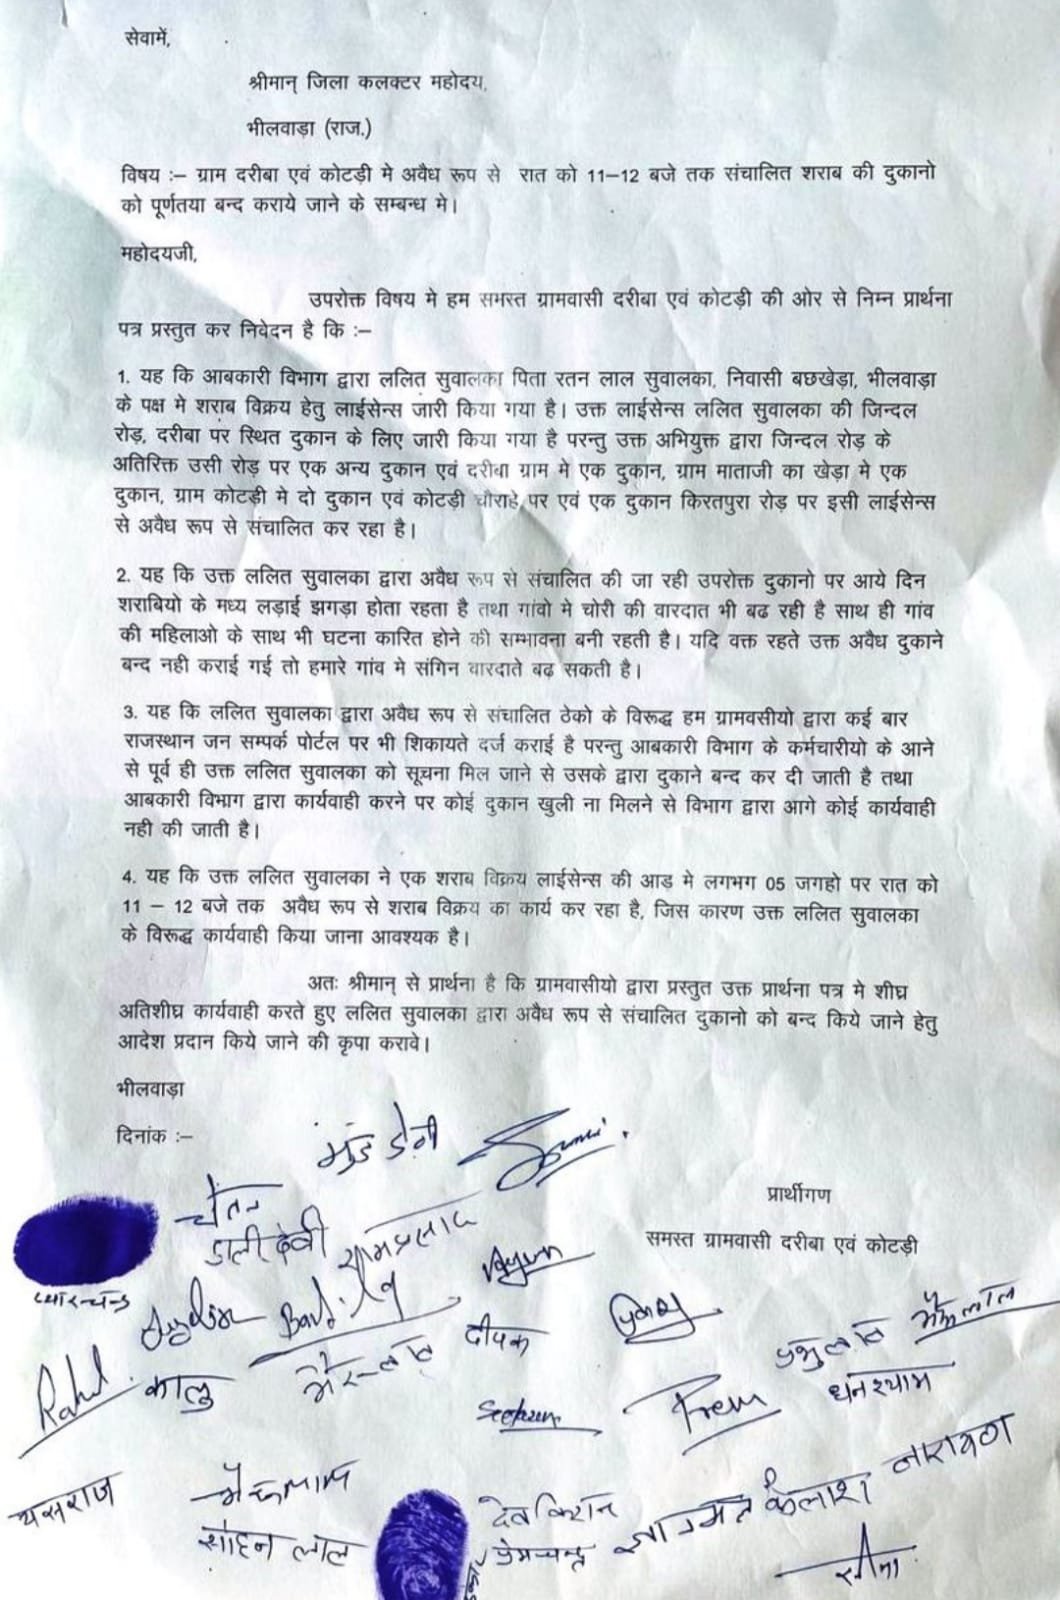 सेवामें,
श्रीमान् जिला कलक्टर महोदय,
भीलवाड़ा (राज.)
विषय :– ग्राम दरीबा एवं कोटड़ी मे अवैध रूप से रात को 11–12 बजे तक संचालित शराब की दुकानो
को पूर्णतया बन्द कराये जाने के सम्बन्ध मे।
महोदयजी,
उपरोक्त विषय मे हम समस्त ग्रामवासी दरीबा एवं कोटड़ी की ओर से निम्न प्रार्थना
पत्र प्रस्तुत कर निवेदन है कि :–
1. यह कि आबकारी विभाग द्वारा ललित सुवालका पिता रतन लाल सुवालका, निवासी बछखेड़ा, भीलवाड़ा
के पक्ष मे शराब विक्रय हेतु लाईसेन्स जारी किया गया है। उक्त लाईसेन्स ललित सुवालका की जिन्दल
रोड़, दरीबा पर स्थित दुकान के लिए जारी किया गया है परन्तु उक्त अभियुक्त द्वारा जिन्दल रोड़ के
अतिरिक्त उसी रोड़ पर एक अन्य दुकान एवं दरीबा ग्राम मे एक दुकान, ग्राम माताजी का खेड़ा मे एक
दुकान, ग्राम कोटड़ी मे दो दुकान एवं कोटड़ी चौराहे पर एवं एक दुकान किरतपुरा रोड़ पर इसी लाईसेन्स
से अवैध रूप से संचालित कर रहा है।
2. यह कि उक्त ललित सुवालका द्वारा अवैध रूप से संचालित की जा रही उपरोक्त दुकानो पर आये दिन
शराबियो के मध्य लड़ाई झगड़ा होता रहता है तथा गांवो मे चोरी की वारदात भी बढ रही है साथ ही गांव
की महिलाओ के साथ भी घटना कारित होने की सम्भावना बनी रहती है। यदि वक्त रहते उक्त अवैध दुकाने
बन्द नही कराई गई तो हमारे गांव मे संगिन वारदाते बढ़ सकती है।
3. यह कि ललित सुवालका द्वारा अवैध रूप से संचालित ठेको के विरूद्ध हम ग्रामवसीयो द्वारा कई बार
राजस्थान जन सम्पर्क पोर्टल पर भी शिकायते दर्ज कराई है परन्तु आबकारी विभाग के कर्मचारीयो के आने
से पूर्व ही उक्त ललित सुवालका को सूचना मिल जाने से उसके द्वारा दुकाने बन्द कर दी जाती है तथा
आबकारी विभाग द्वारा कार्यवाही करने पर कोई दुकान खुली ना मिलने से विभाग द्वारा आगे कोई कार्यवाही
नही की जाती है।
4. यह कि उक्त ललित सुवालका ने एक शराब विक्रय लाईसेन्स की आड मे लगभग 05 जगहो पर रात को
11 – 12 बजे तक अवैध रूप से शराब विक्रय का कार्य कर रहा है, जिस कारण उक्त ललित सुवालका
के विरूद्ध कार्यवाही किया जाना आवश्यक है।
अतः श्रीमान् से प्रार्थना है कि ग्रामवासीयो द्वारा प्रस्तुत उक्त प्रार्थना पत्र मे शीघ्र
अतिशीघ्र कार्यवाही करते हुए ललित सुवालका द्वारा अवैध रूप से संचालित दुकानो को बन्द किये जाने हेतु
आदेश प्रदान किये जाने की कृपा करावे।
भीलवाड़ा
दिनांक :–
प्रार्थीगण
समस्त ग्रामवासी दरीबा एवं कोटड़ी
चेतन
डाली देवी
प्यारचन्द
दीपक
Rahul
कालु
Prem
घनश्याम
यसराज
सोहन लाल
देव किशन
प्रेमचन्द्र
कैलाश
नारायण
सीमा